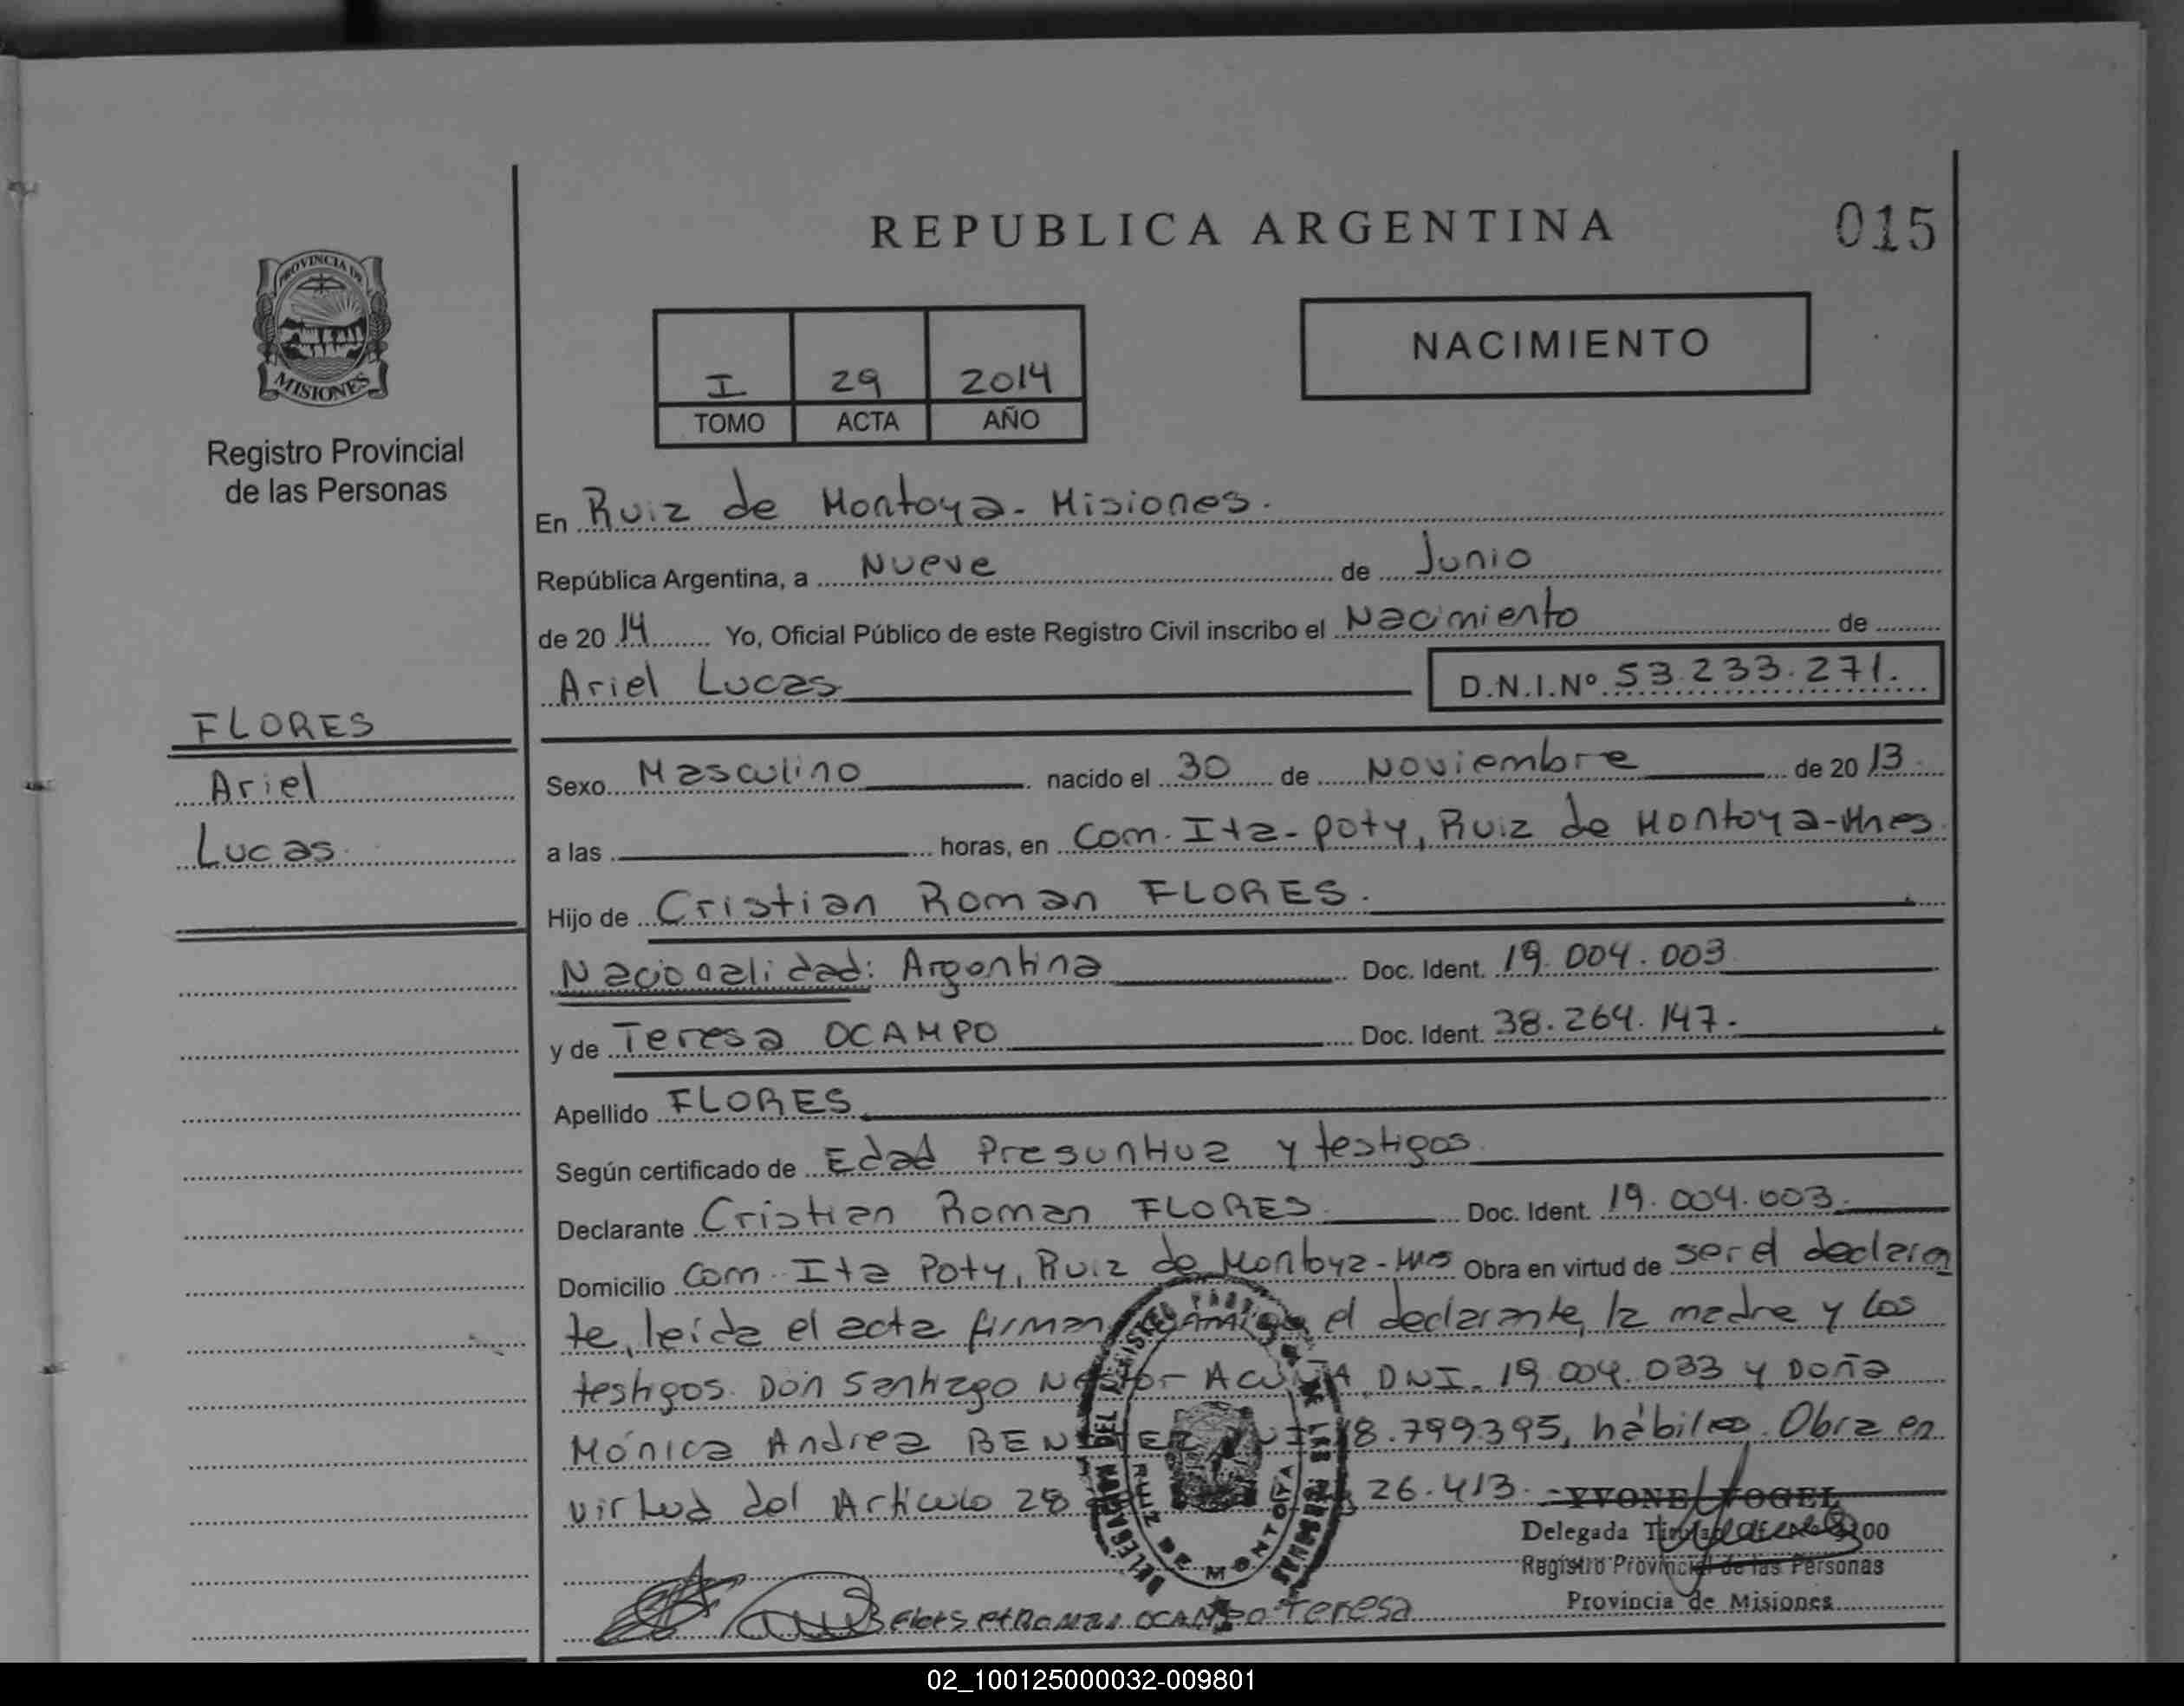 REPUBLICA ARGENTINA
015
PROVINCIA DE
MISIONES
Registro Provincial
de las Personas
I 29 2014
TOMO ACTA AÑO
NACIMIENTO
En Ruiz de Montoya - Misiones.
República Argentina, a Nueve de Junio
de 20 14 Yo, Oficial Público de este Registro Civil inscribo el Nacimiento de
Ariel Lucas D.N.I.Nº 53.233.271.
FLORES
Ariel
Lucas
Sexo Masculino nacido el 30 de Noviembre de 20 13
a las horas, en Com. Ita-poty, Ruiz de Montoya-Mnes
Hijo de Cristian Roman FLORES.
Nacionalidad: Argentina Doc. Ident. 19.004.003
y de Teresa OCAMPO Doc. Ident. 38.264.147.
Apellido FLORES
Según certificado de Edad Presuntiva y testigos
Declarante Cristian Roman FLORES Doc. Ident. 19.004.003.
Domicilio Com. Ita Poty, Ruiz de Montoya - Obra en virtud de ser el declaran
te, leída el acta firman el declarante, la madre y los
testigos. Don Santiago Néstor ACUÑA DNI. 19.004.033 y Doña
Mónica Andrea 18.799395, hábiles. Obra en
virtud del Artículo 28 26.413.
YVONE VOGEL
Delegada
Registro Provincial de las Personas
Provincia de Misiones
RUIZ DE MONTOYA
OCAMPO Teresa
02_100125000032-009801